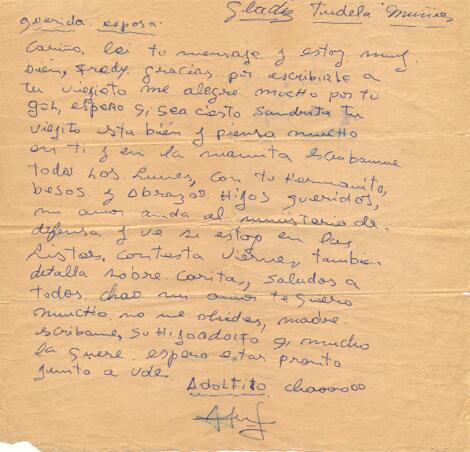 Gladiz Tudela Muñoz
querida esposa.
Cariño, lei tu mensaje y estoy muy
bien, Fredy gracias por escribirle a
tu viejito me alegre mucho por tu
gol, espero q sea cierto Sandrita tu
viejito esta bien y piensa mucho
en ti y en la mamita escribanme
todos los Lunes, con tu Hermanito,
besos y Abrazos Hijos queridos,
mi amor anda al ministerio de
defensa y ve si estoy en las
Listas, contesta Viernes, tambien
detalla sobre Carita, saludos a
todos. chao mi amor te quiero
mucho, no me olvides, madre
escribame, su Hijo adolfo q mucho
la quere. espero estar pronto
junto a uds.
Adolfito chaooooo